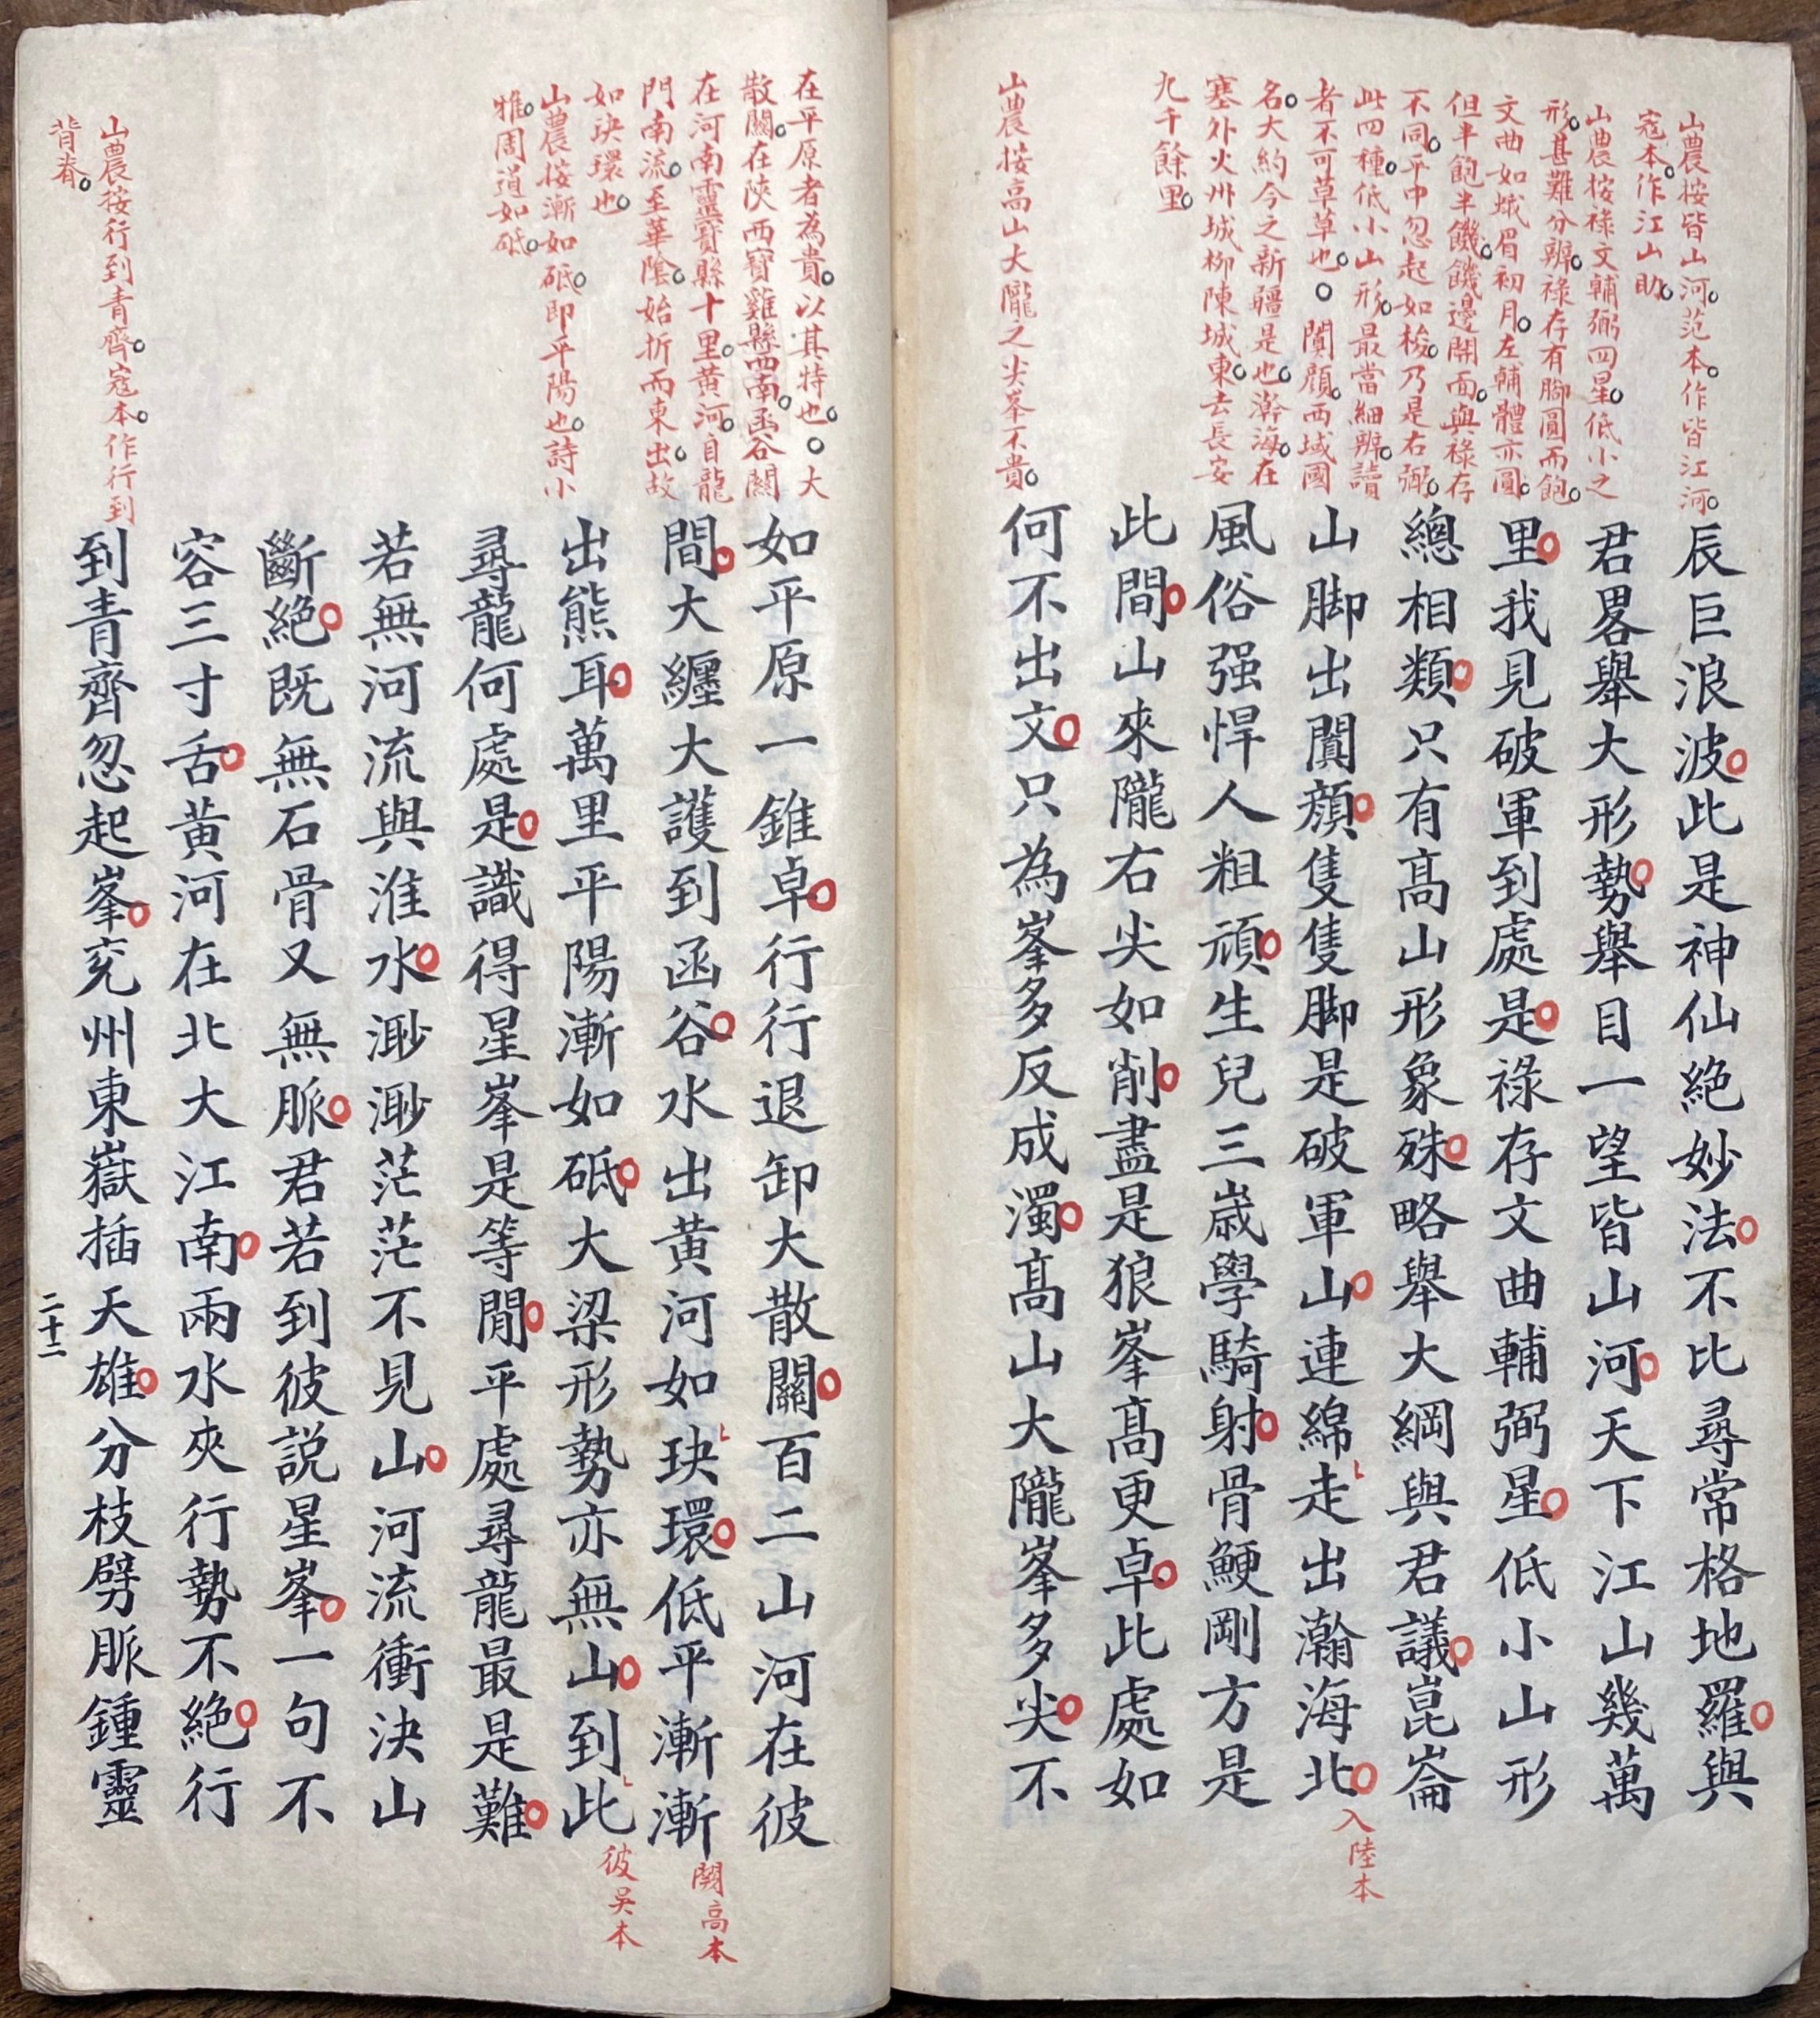 山農按皆山河范本作皆江河
寇本作江山助
山農按祿文輔弼四星低小之
形甚難分辨祿存有脚圓而飽
文曲如蛾眉初月左輔體亦圓
但半飽半饑饑邊開面與祿存
不同平中忽起如梭乃是右弼
此四種低小山形最當細辨讀
者不可草草也 闐顏西域國
名大約今之新疆是也瀚海在
塞外火州城柳陳城東去長安
九千餘里
山農按高山大隴之尖峯不貴
辰巨浪波此是神仙絕妙法不比尋常格地羅與
君畧舉大形勢舉目一望皆山河天下江山幾萬
里我見破軍到處是祿存文曲輔弼星低小山形
總相類只有高山形象殊略舉大綱與君議崑崙
山脚出闐顏隻隻脚是破軍山連綿走出瀚海北
入陸本
風俗强悍人粗頑生兒三歲學騎射骨鯁剛方是
此間山來隴右尖如削盡是狼峯高更卓此處如
何不出文只為峯多反成濁高山大隴峯多尖不
在平原者為貴以其特也 大
散關在陝西寶雞縣西南函谷關
在河南靈寶縣十里黃河自龍
門南流至華陰始折而東出故
如玦環也
山農按漸如砥即平陽也詩小
雅周道如砥
山農按行到青齊寇本作行到
背脊
如平原一錐卓行行退卸大散關百二山河在彼
間大纏大護到函谷水出黃河如玦環低平漸漸
關高本
出熊耳萬里平陽漸如砥大梁形勢亦無山到此
彼吳本
尋龍何處是識得星峯是等閒平處尋龍最是難
若無河流與淮水渺渺茫茫不見山河流衝決山
斷絕既無石骨又無脈君若到彼説星峯一句不
容三寸舌黃河在北大江南兩水夾行勢不絕行
到青齊忽起峯兖州東嶽插天雄分枝劈脈鍾靈
二十二